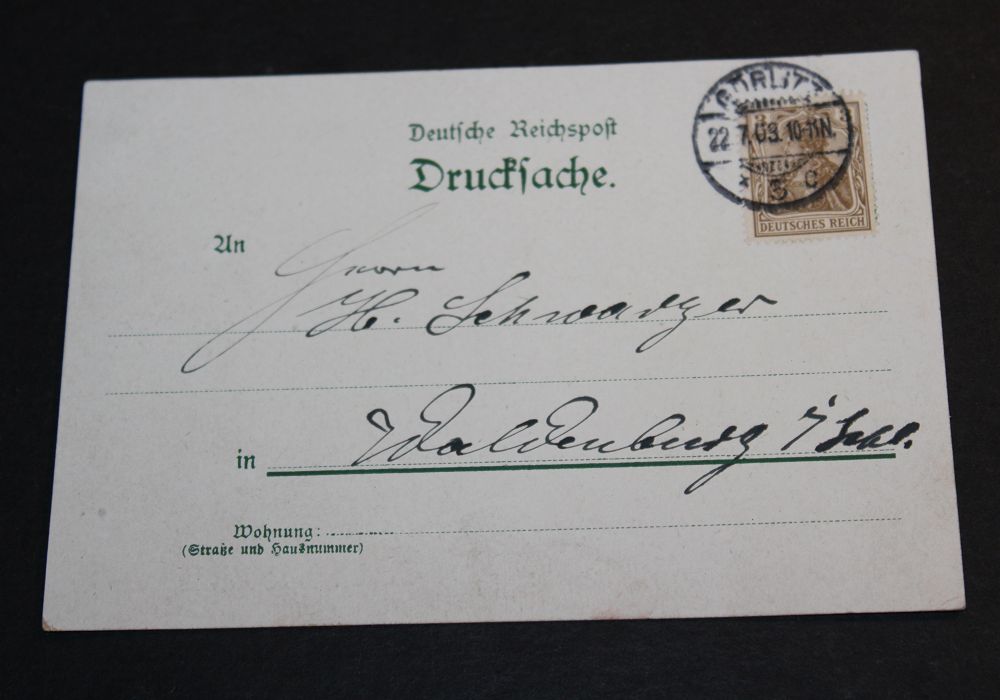 Deutsche Reichspost
Drucksache.
GÖRLITZ
22.7.03. 10-11N.
* 5 c
DEUTSCHES REICH
An
Herrn
H. Schwardzer
in Waldenburg i/Schl.
Wohnung:
(Straße und Hausnummer)